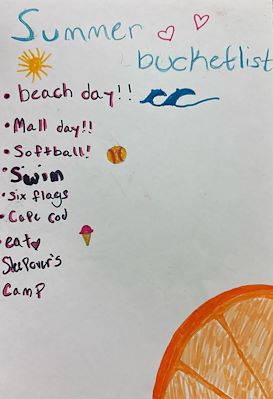 Summer
bucketlist
• beach day!!
• Mall day!!
• Softball!
• Swim
• Six flags
• Cape cod
• eat
Sleepover's
Camp